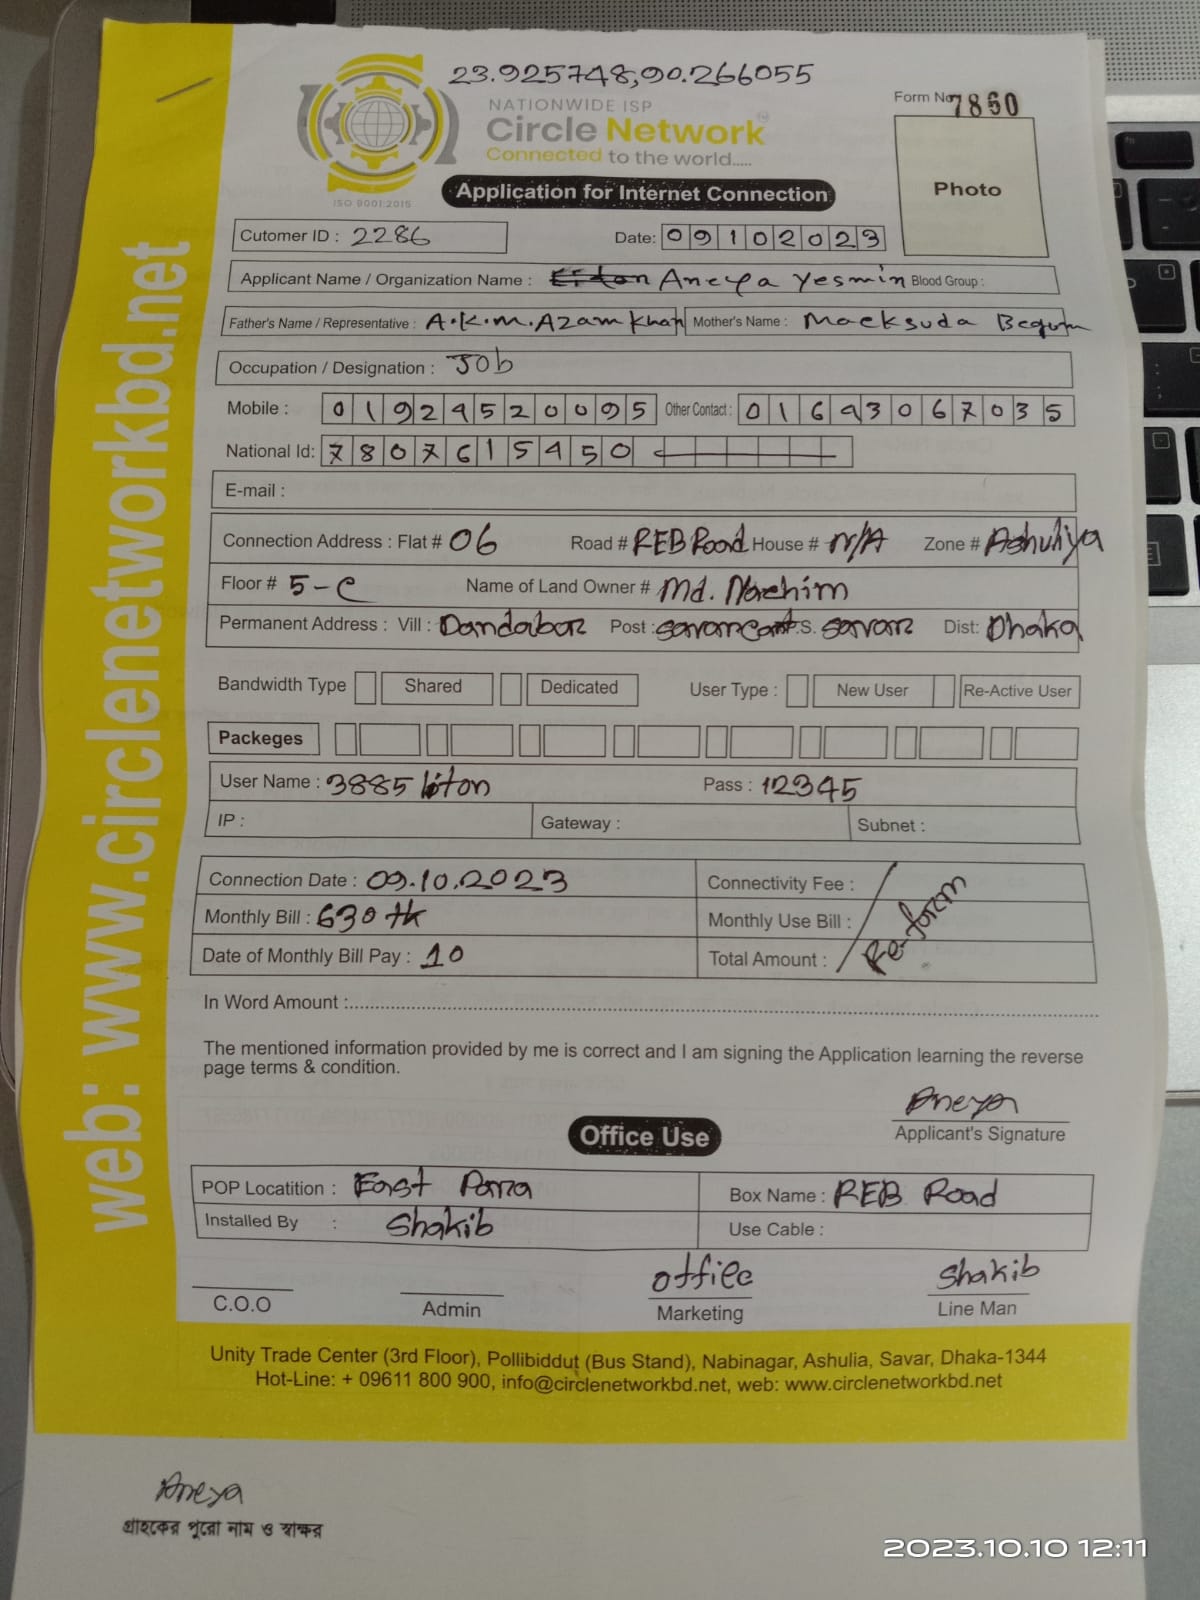 23.925748,90.266055
NATIONWIDE ISP
Form No 7860
Circle Network
Connected to the world.....
ISO 9001:2015
Application for Internet Connection
Photo
Cutomer ID : 2286 Date: 09102023
Applicant Name / Organization Name : Aneya Yesmin Blood Group :
Father's Name / Representative : A.K.M.Azam Khan Mother's Name : Macksuda Begum
Occupation / Designation : Job
Mobile : 01924520095 Other Contact : 01643067035
National Id: 7807615450
E-mail :
Connection Address : Flat # 06 Road # REB Road House # N/A Zone # Ashuliya
Floor # 5-C Name of Land Owner # Md. Nachim
Permanent Address : Vill : Dandabor Post : savarcant P.S. savar Dist: Dhaka
Bandwidth Type Shared Dedicated User Type : New User Re-Active User
Packeges
User Name : 3885liton Pass : 12345
IP : Gateway : Subnet :
Connection Date : 09.10.2023 Connectivity Fee :
Monthly Bill : 630 tk Monthly Use Bill :
Date of Monthly Bill Pay : 10 Total Amount : Re-form
In Word Amount :
The mentioned information provided by me is correct and I am signing the Application learning the reverse
page terms & condition.
Aneya
Applicant's Signature
Office Use
POP Locatition : East Para Box Name : REB Road
Installed By : Shakib Use Cable :
office Shakib
C.O.O Admin Marketing Line Man
Unity Trade Center (3rd Floor), Pollibiddut (Bus Stand), Nabinagar, Ashulia, Savar, Dhaka-1344
Hot-Line: + 09611 800 900, info@circlenetworkbd.net, web: www.circlenetworkbd.net
web: www.circlenetworkbd.net
Aneya
গ্রাহকের পুরো নাম ও স্বাক্ষর
2023.10.10 12:11